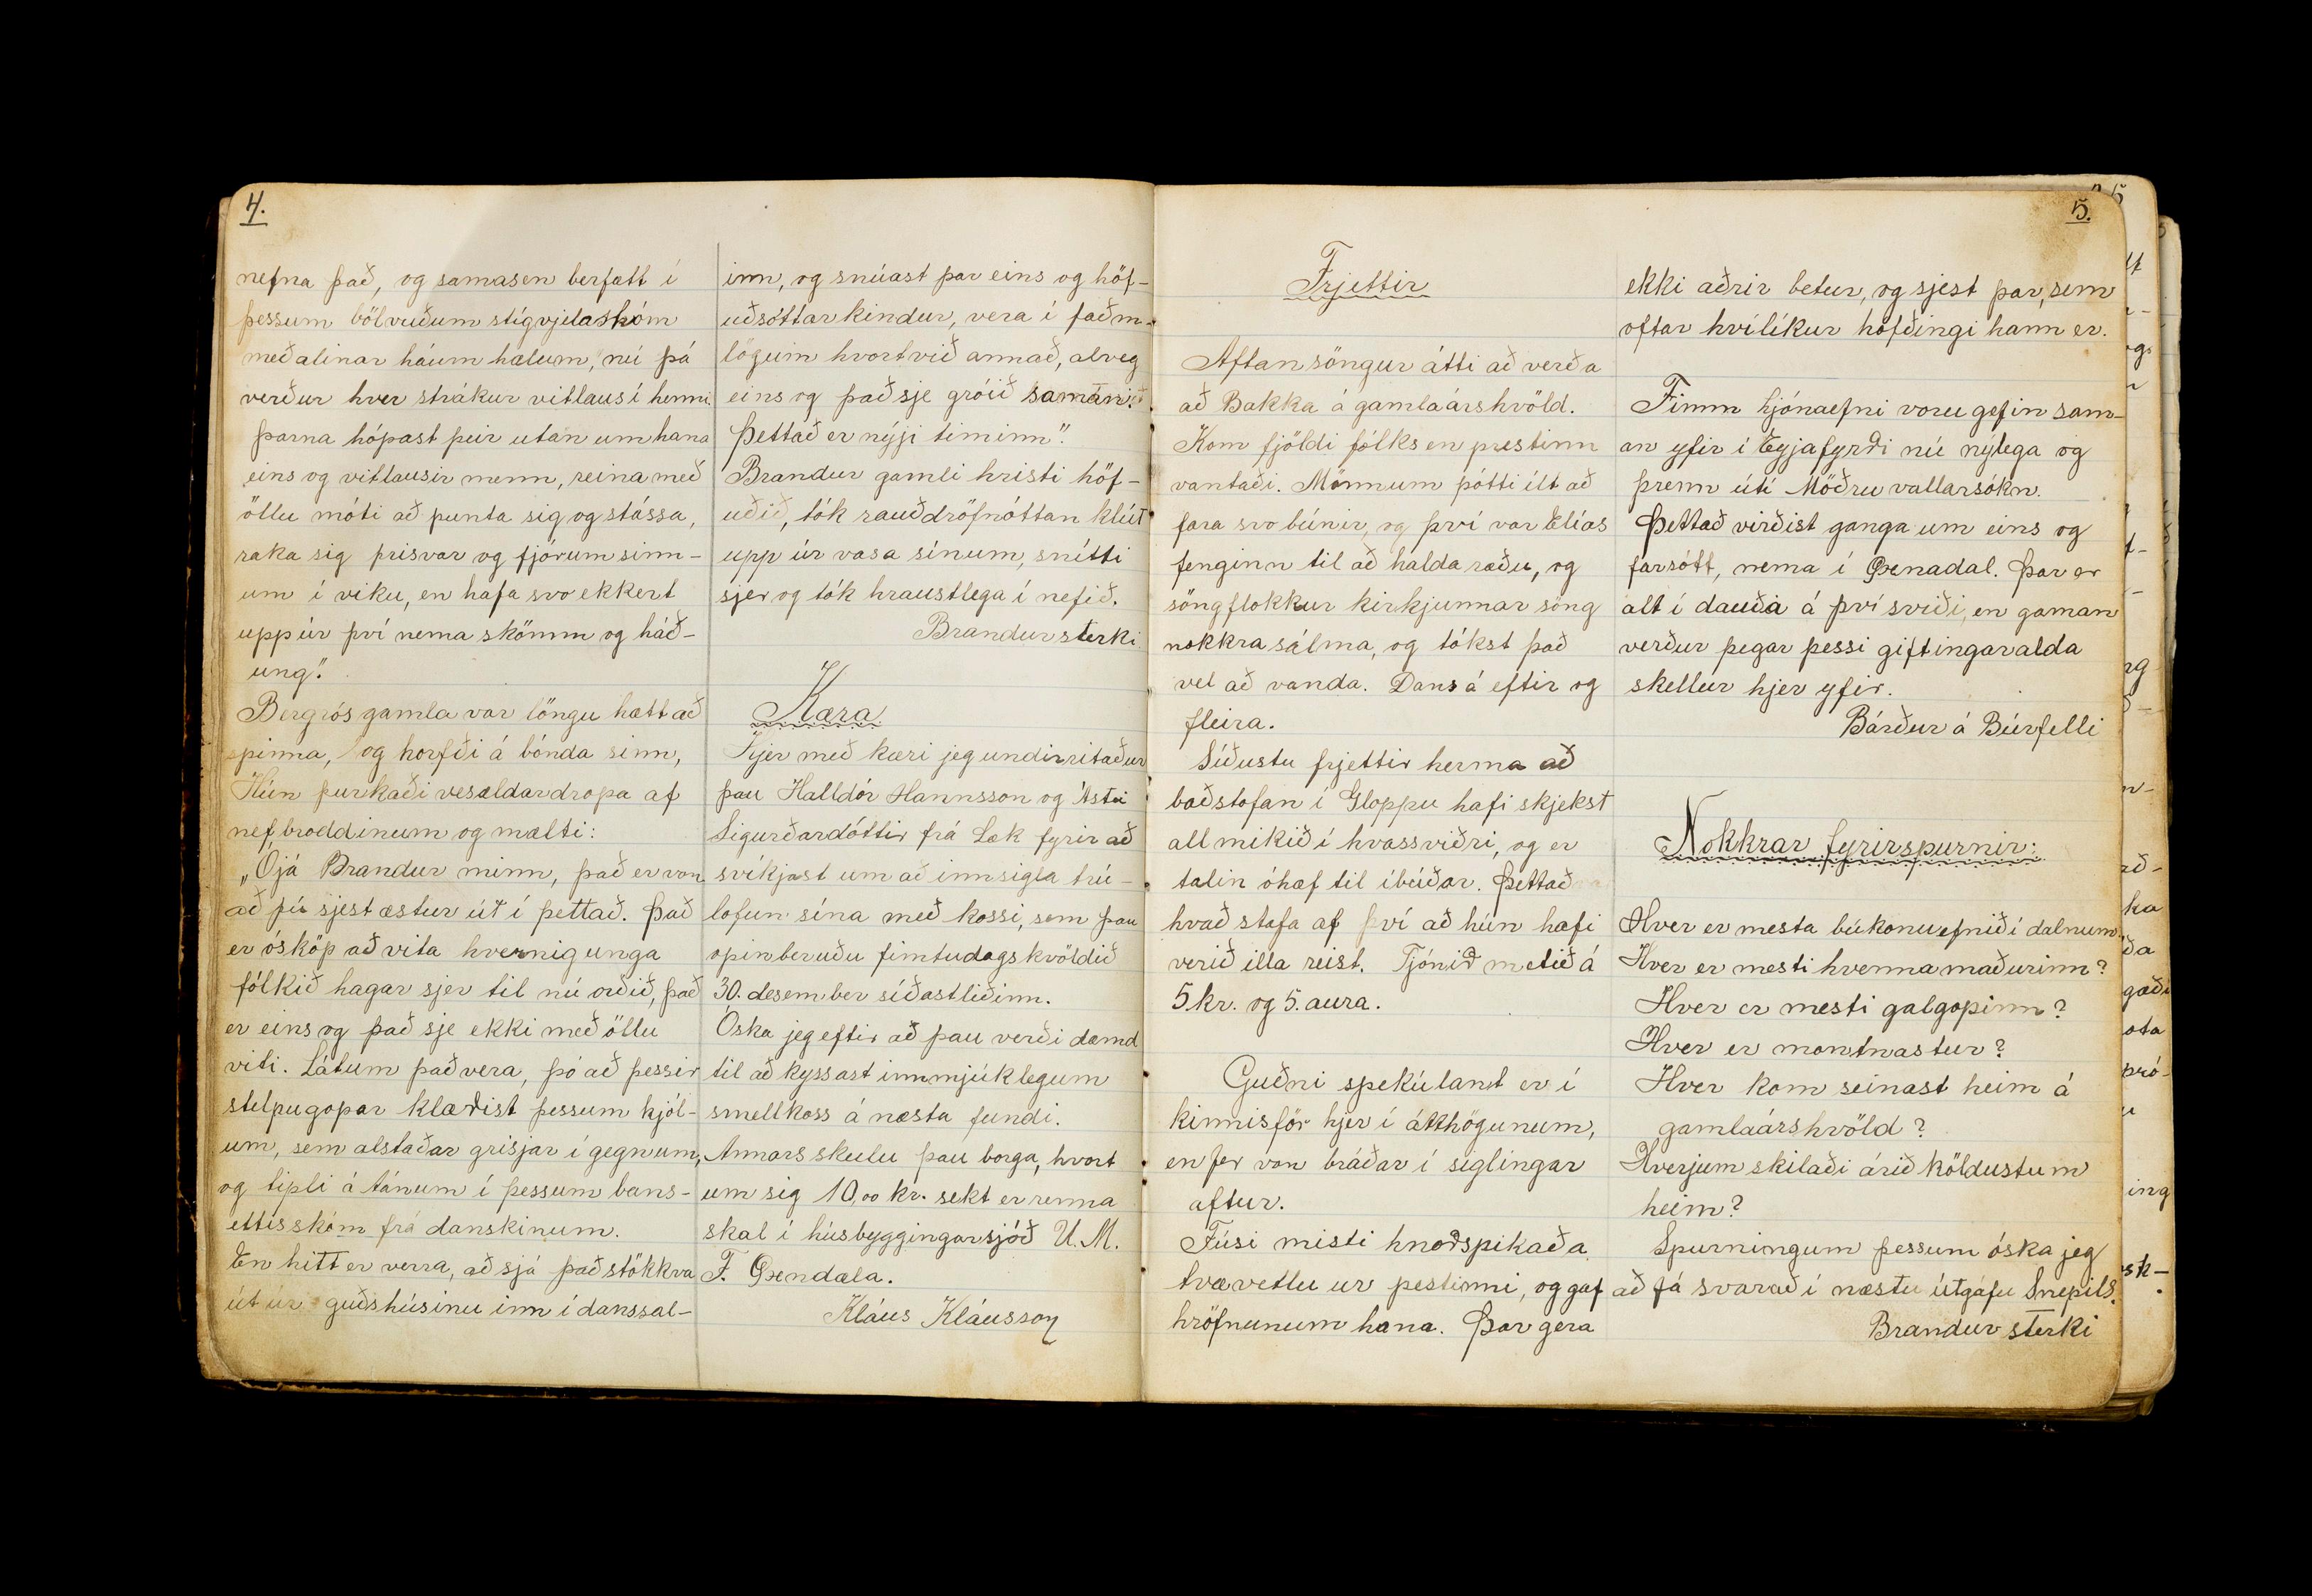 4.
nefna það, og samasem berfætt í
þessum bölvuðum stígvjelaskóm
með alinar háum hælum, nú þá
verður hver strákur vitlaus í henni.
Þarna hópast þeir utan um hana
eins og vitlausir menn, reina með
öllu móti að punta sig og stássa,
raka sig þrisvar og fjórum sinn-
um í viku, en hafa svo ekkert
upp úr því nema skömm og háð-
ung."
Bergrós gamla var löngu hætt að
spinna, og horfði á bónda sinn,
Hún þurkaði vesældardropa af
nefbroddinum og mælti:
„Ójá Brandur minn, það er von
að þú sjest æstur út í þettað. Það
er ósköp að vita hvernig unga
fólkið hagar sjer til nú orðið, það
er eins og það sje ekki með öllu
viti. Látum það vera, þó að þessir
stelpugopar klæðist þessum kjól-
um, sem alstaðar grisjar í gegnum,
og tipli á tánum í þessum bans-
ettis skóm frá danskinum.
En hitt er verra, að sjá það stökkva
út úr guðshúsinu inn í danssal-
inn, og snúast þar eins og höf-
uðsóttarkindur, vera í faðm-
lögum hvort við annað, alveg
eins og það sje gróið saman.
Þettað er nýji timinn".
Brandur gamli hristi höf-
uðið, tók rauðdröfnóttan klút
upp úr vasa sínum, snítti
sjer og tók hraustlega í nefið.
Brandur sterki
Kæra
Hjer með kæri jeg undirritaður
þau Halldór Hannsson og Ástu
Sigurðardóttir frá Læk fyrir að
svíkjast um að innsigla trú-
lofun sína með kossi, sem þau
opinberuðu fimtudagskvöldið
30. desember síðastliðinn.
Óska jeg eftir að þau verði dæmd
til að kyssast innmjúklegum
smellkoss á næsta fundi.
Annars skulu þau borga, hvort
um sig 10,00 kr. sekt er renna
skal í húsbyggingarsjóð U. M.
F. Öxndæla.
Kláus Kláusson
5.
Frjettir
Aftansöngur átti að verða
að Bakka á gamlaárskvöld.
Kom fjöldi fólks en prestinn
vantaði. Mönnum þótti ilt að
fara svo búnir, og því var Elías
fenginn til að halda ræðu, og
söngflokkur kirkjunnar söng
nokkra sálma, og tókst það
vel að vanda. Dans á eftir og
fleira.
Síðustu frjettir herma að
baðstofan í Gloppu hafi skjekst
all mikið í hvassviðri, og er
talin óhæf til íbúðar. Þettað
hvað stafa af því að hún hafi
verið illa reist. Tjónið metið á
5 kr. og 5. aura.
Guðni spekúlant er í
kinnisför hjer í átthögunum,
en fer von bráðar í siglingar
aftur.
Fúsi misti hnoðspikaða
tvævetlu ur pestinni, og gaf
hröfnunum hana. Þar gera
ekki aðrir betur, og sjest þar, sem
oftar hvílíkur höfðingi hann er.
Fimm hjónaefni voru gefin sam-
an yfir í Eyjafyrði nú nýlega og
þrenn útí Möðruvallarsókn.
Þettað virðist ganga um eins og
farsótt, nema í Öxnadal. Þar er
alt í dauða á því sviði, en gaman
verður þegar þessi giftingaralda
skellur hjer yfir.
Bárður á Búrfelli
Nokkrar fyrirspurnir:
Hver er mesta búkonuefnið í dalnum?
Hver er mesti kvennamaðurinn?
Hver er mesti galgopinn?
Hver er montnastur?
Hver kom seinast heim á
gamlaárskvöld?
Hverjum skilaði árið köldustum
heim?
Spurningum þessum óska jeg
að fá svarað í næstu útgáfu Snepils.
Brandur sterki